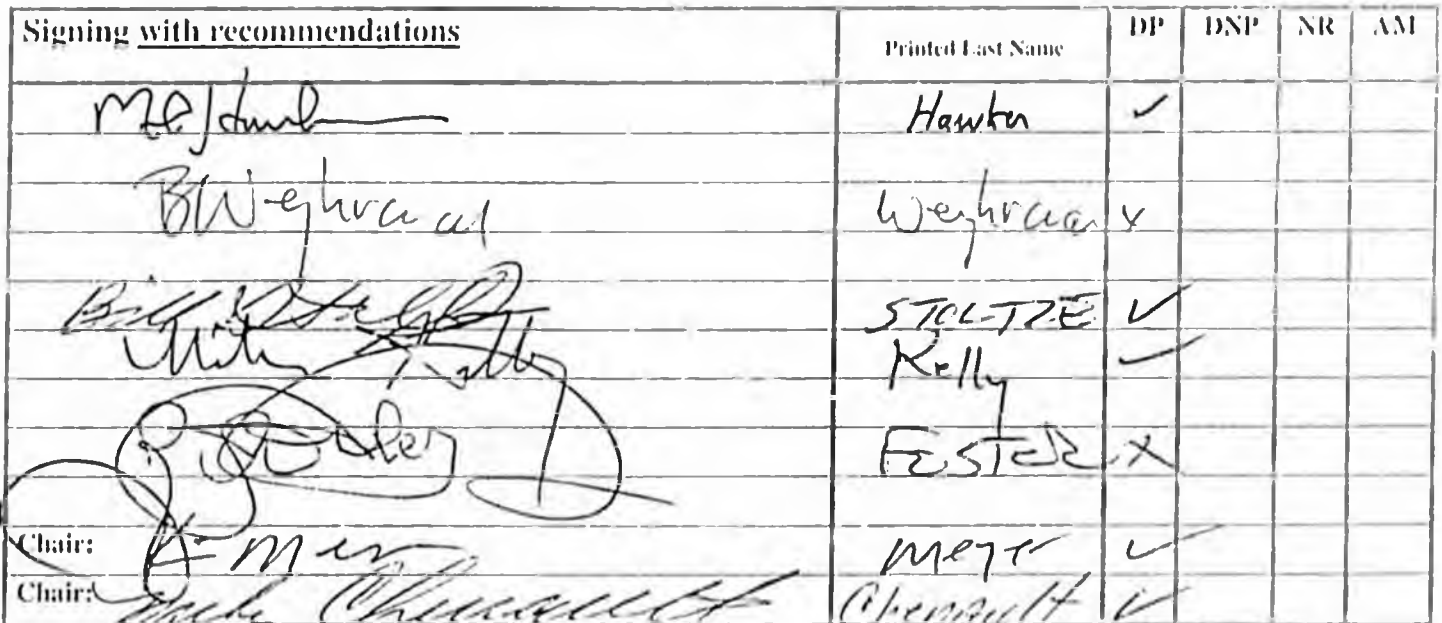 Signing with recommendations Printed Last Name DP DNP NR AM
Hawker ✓
BWeyhrauch Weyhrauch x
Bill Stoltze STOLTZE ✓
Mike Kelly Kelly ✓
Foster FOSTER X
Chair: K Meyer Meyer ✓
Chair: Mike Chenault Chenault ✓